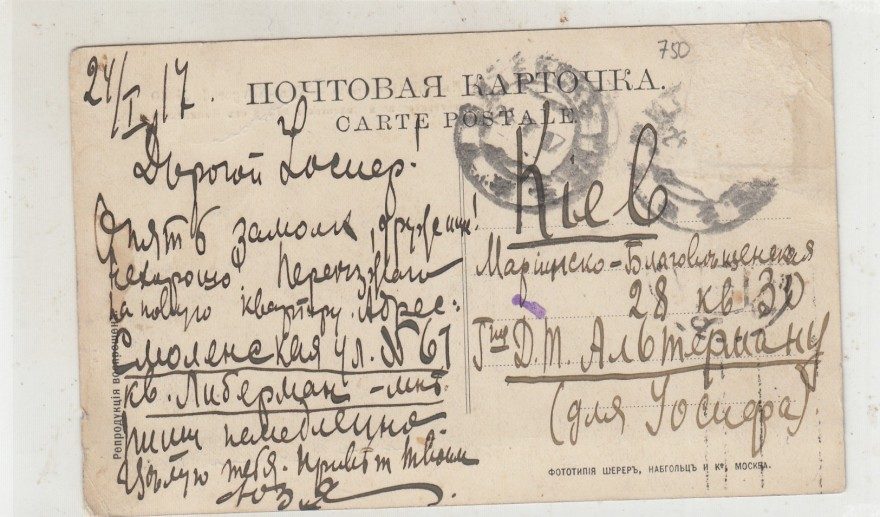 750
24/I 17.
ПОЧТОВАЯ КАРТОЧКА.
CARTE POSTALE.
Дорогой Іосиф!
Опять замолк, дружище!
Нехорошо. Переезжаю
на новую квартиру. Адрес:
Смоленская ул. № 67
кв. Либерман – мнѣ.
Пиши немедленно.
Цѣлую тебя. Привѣт твоим
Кіев
Маріинско-Благовѣщенская
28 кв 30
Гну Д. М. Альтерману
(для Іосифа).
Репродукція воспрещ
ФОТОТИПІЯ ШЕРЕРЪ, НАБГОЛЬЦЪ И Кº, МОСКВА.